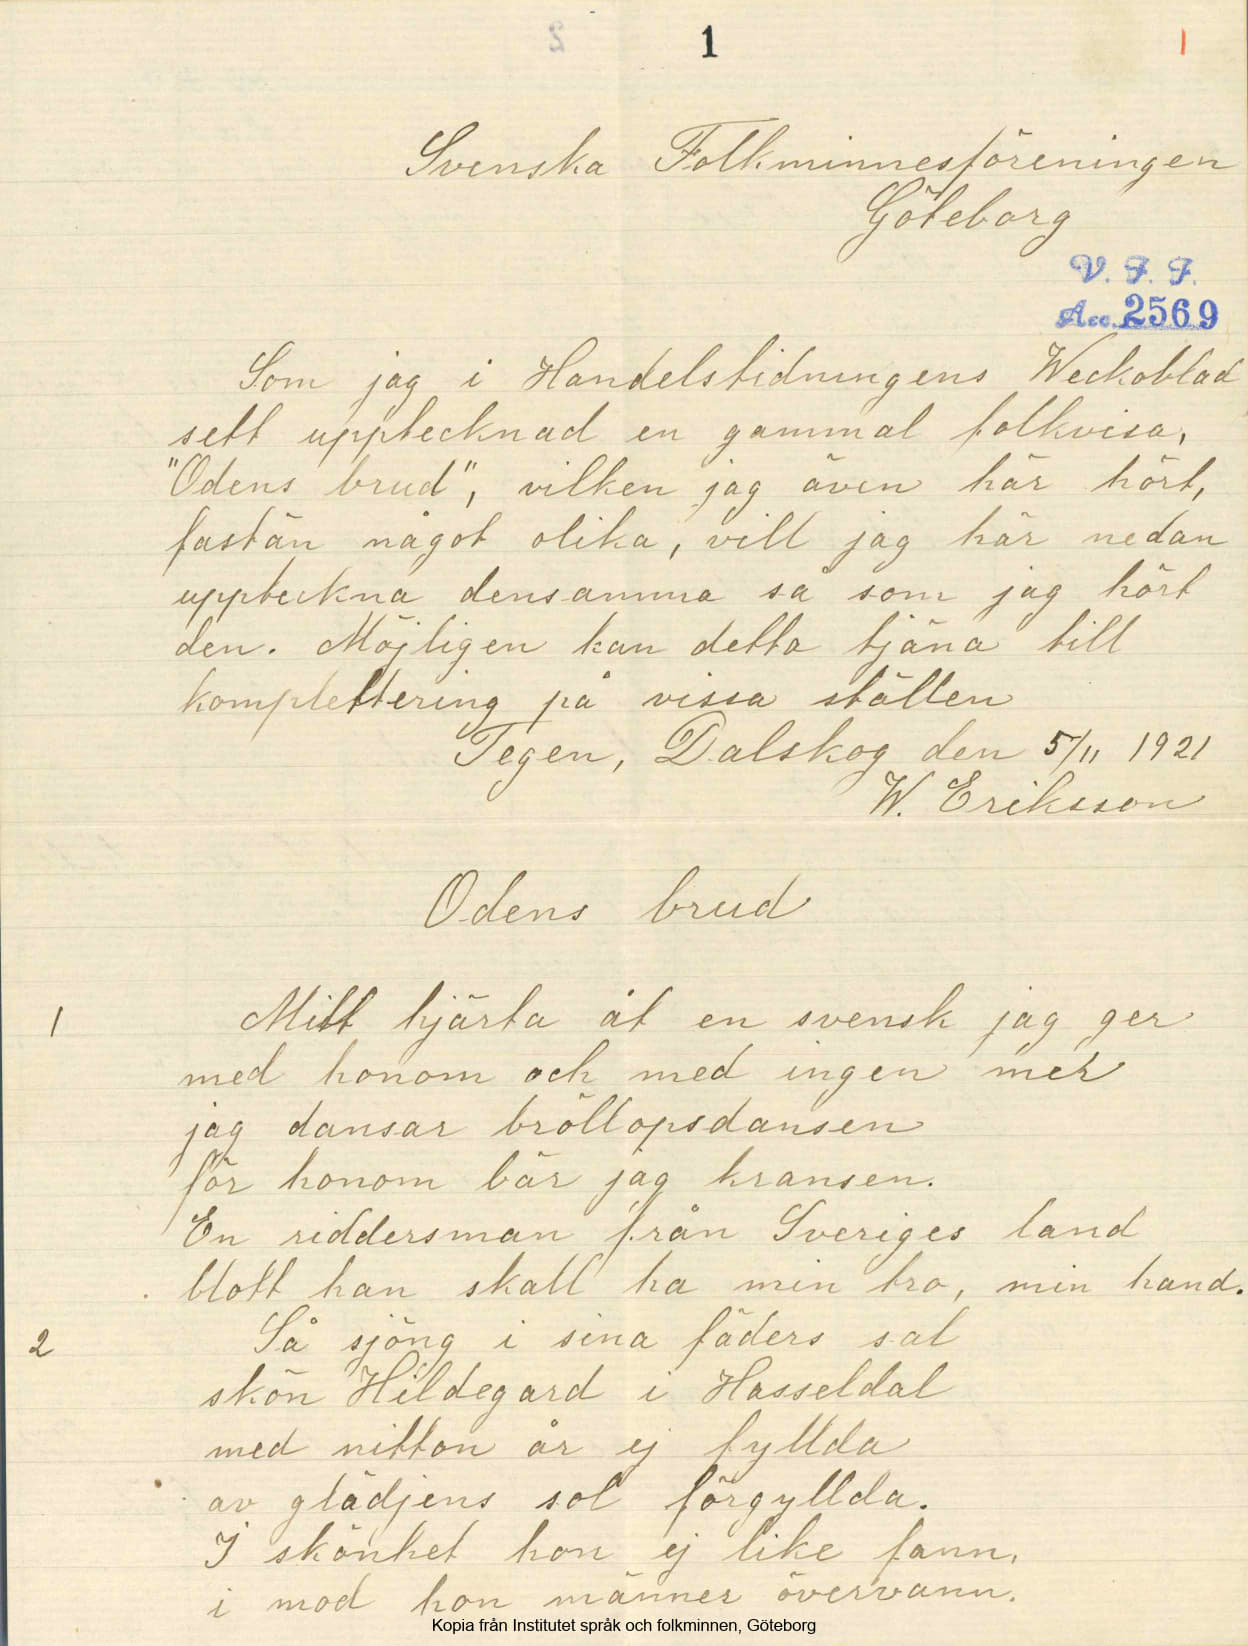 1
1
Svenska Folkminnesföreningen
Göteborg
V. F. F.
Acc. 2569
Som jag i Handelstidningens Weckoblad
sett upptecknad en gammal folkvisa,
"Odens brud", vilken jag även här hört,
fastän något olika, vill jag här nedan
uppteckna densamma så som jag hört
den. Möjligen kan detta tjäna till
komplettering på vissa ställen
Tegen, Dalskog den 5/11 1921
W. Eriksson
Odens brud
1 Mitt hjärta åt en svensk jag ger
med honom och med ingen mer
jag dansar bröllopsdansen
för honom bär jag kransen.
En riddersman från Sveriges land
blott han skall ha min tro, min hand.
2 Så sjöng i sina fäders sal
skön Hildegard i Hasseldal
med nitton år ej fyllda
av glädjens sol förgyllda.
I skönhet hon ej like fann,
i mod hon männer övervann.
Kopia från Institutet språk och folkminnen, Göteborg